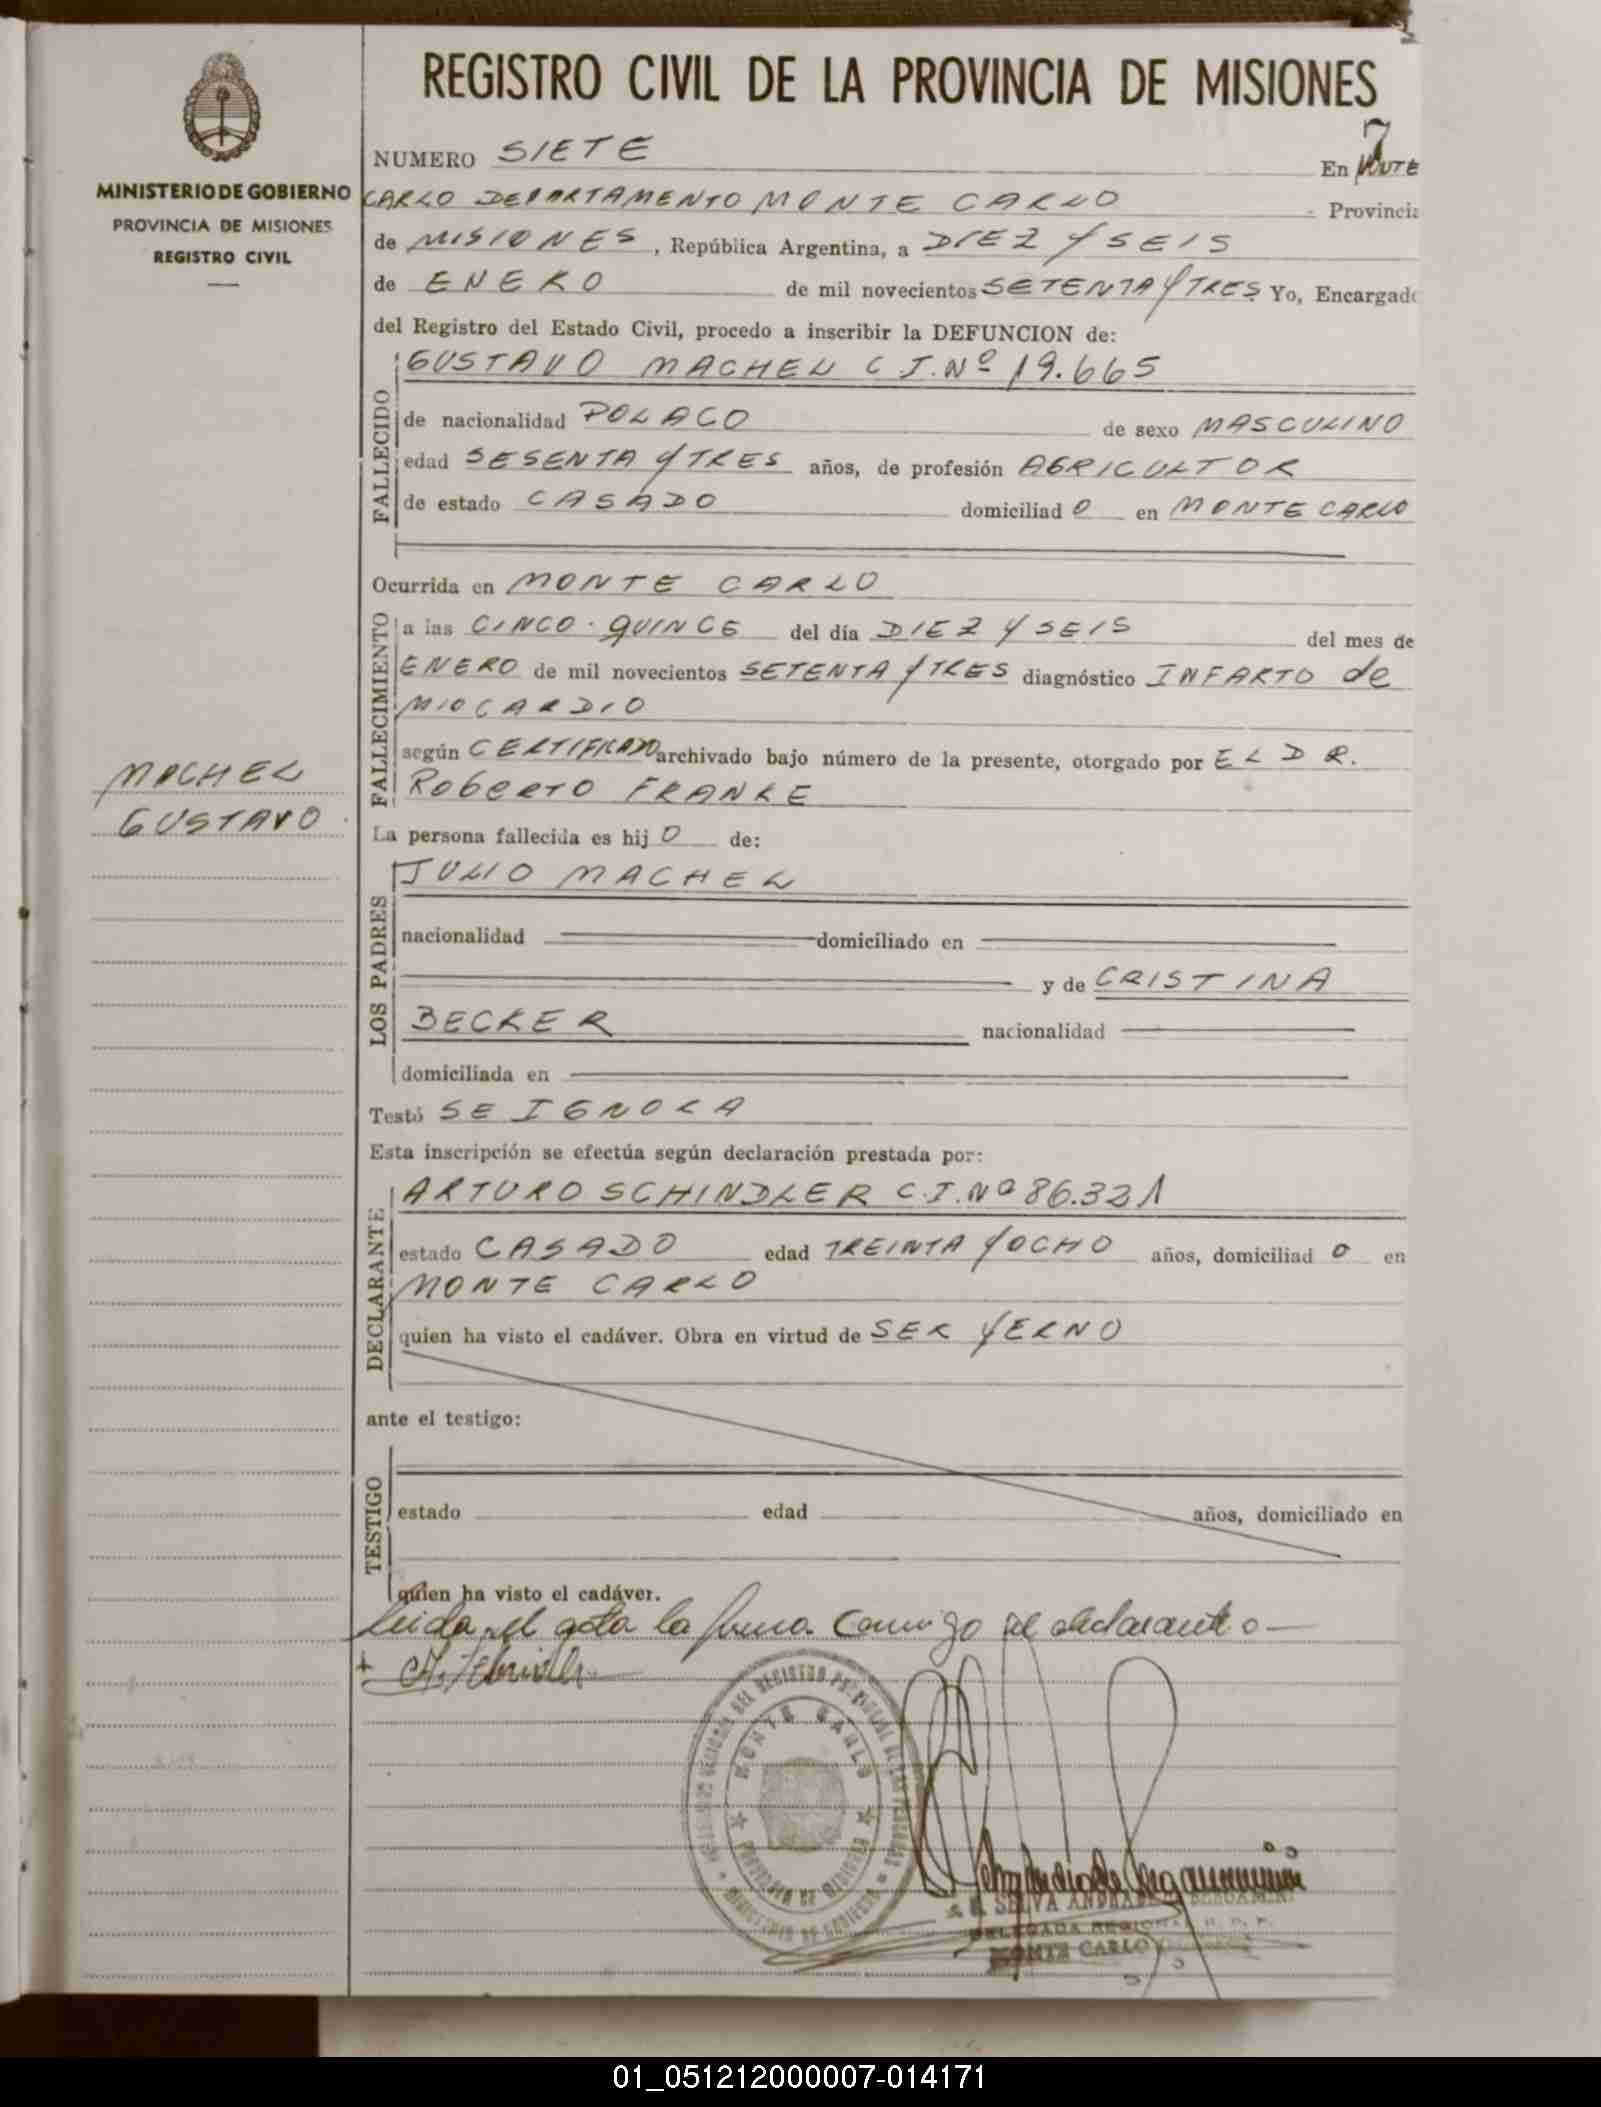 REGISTRO CIVIL DE LA PROVINCIA DE MISIONES
MINISTERIO DE GOBIERNO
PROVINCIA DE MISIONES
REGISTRO CIVIL
7
NUMERO SIETE En MONTE
CARLO DEPARTAMENTO MONTE CARLO Provincia
de MISIONES, República Argentina, a DIEZ Y SEIS
de ENERO de mil novecientos SETENTA Y TRES Yo, Encargado
del Registro del Estado Civil, procedo a inscribir la DEFUNCION de:
FALLECIDO
GUSTAVO MACHEL C I. Nº 19.665
de nacionalidad POLACO de sexo MASCULINO
edad SESENTA Y TRES años, de profesión AGRICULTOR
de estado CASADO domiciliad O en MONTE CARLO
Ocurrida en MONTE CARLO
FALLECIMIENTO
a las CINCO · QUINCE del día DIEZ Y SEIS del mes de
ENERO de mil novecientos SETENTA Y TRES diagnóstico INFARTO de
MIOCARDIO
según CERTIFICADO archivado bajo número de la presente, otorgado por EL DR.
Roberto FRANKE
MACHEL
GUSTAVO
La persona fallecida es hij O de:
LOS PADRES
JULIO MACHEL
nacionalidad domiciliado en
y de CRISTINA
BECKER nacionalidad
domiciliada en
Testó SE IGNORA
Esta inscripción se efectúa según declaración prestada por:
DECLARANTE
ARTURO SCHINDLER C.I. Nº 86.321
estado CASADO edad TREINTA Y OCHO años, domiciliad O en
MONTE CARLO
quien ha visto el cadáver. Obra en virtud de SER YERNO
ante el testigo:
TESTIGO
estado edad años, domiciliado en
quien ha visto el cadáver.
Leida el acta la firma conmigo el declarante
MONTE CARLO
PROVINCIA DE MISIONES
SELVA ANDRADE
DELEGADA REGIONAL R. P. P.
MONTE CARLO
01_051212000007-014171